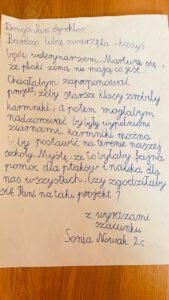 Droga Pani dyrektor,
Bardzo lubię zwierzęta i kiedyś
będę weterynarzem. Martwię się,
że ptaki zimą nie mają co jeść.
Chciałabym zaproponować
projekt, żeby starsze klasy zrobiły
karmniki, a potem mogłabym
nadzorować by były wypełnione
ziarnami. karmniki można
by postawić na terenie naszej
szkoły. Myślę, że to byłaby fajna
pomoc dla ptaków i nauka dla
nas wszystkich. Czy zgodziłaby
się Pani na taki projekt?
z wyrazami
szacunku
Sonia Nowak 2c